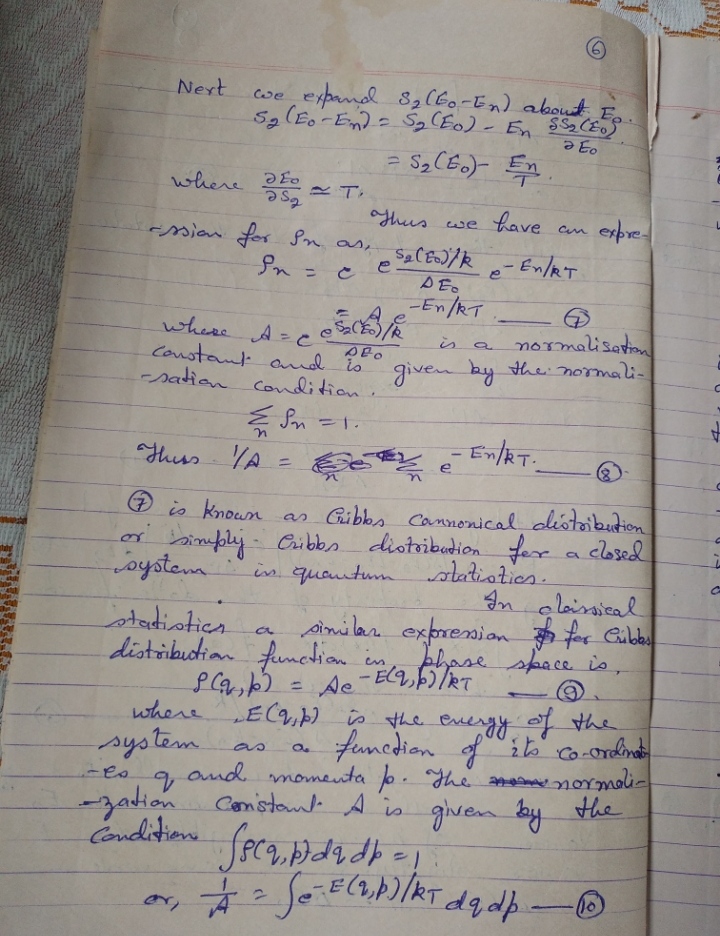 ⑥
Next we expand S₂(E₀-Eₙ) about E₀.
S₂(E₀-Eₙ) = S₂(E₀) - Eₙ δS₂(E₀)/∂E₀
= S₂(E₀) - Eₙ/T.
where ∂E₀/∂S₂ ≃ T.
Thus we have an expre-
-ssion for ρₙ as,
ρₙ = c e^{S₂(E₀)/k}/ΔE₀ e^{-Eₙ/kT}
= A e^{-Eₙ/kT} — ⑦
where A = c e^{S₂(E₀)/k}/ΔE₀ is a normalisation
constant and is given by the normali-
-sation condition.
Σₙ ρₙ = 1.
Thus 1/A = Σₙ e^{-Eₙ/kT}. — ⑧
⑦ is known as Gibbs cannonical distribution
or simply Gibbs distribution for a closed
system in quantum statistics.
In classical
statistics a similar expression for Gibbs
distribution function in phase space is,
ρ(q,p) = Ae^{-E(q,p)/kT} — ⑨.
where E(q,p) is the energy of the
system as a function of its co-ordinat-
-es q and momenta p. The normali-
-zation constant A is given by the
Condition
∫ρ(q,p)dq dp = 1
or, 1/A = ∫e^{-E(q,p)/kT} dq dp — ⑩